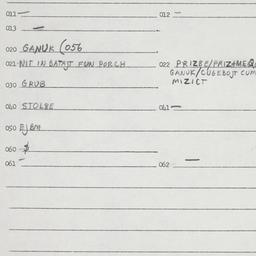 011 — 012 —
013 —
020 GANUK (056
021 NIT IN BATAJT FUN PORCH 022 PRIZBE/PRIZAMEQ
GANUK/CUGEBOJT CUM
030 GRUB MIZICT
040 STOLBE 041 —
050 EJBM
060 $
061 — 062 —